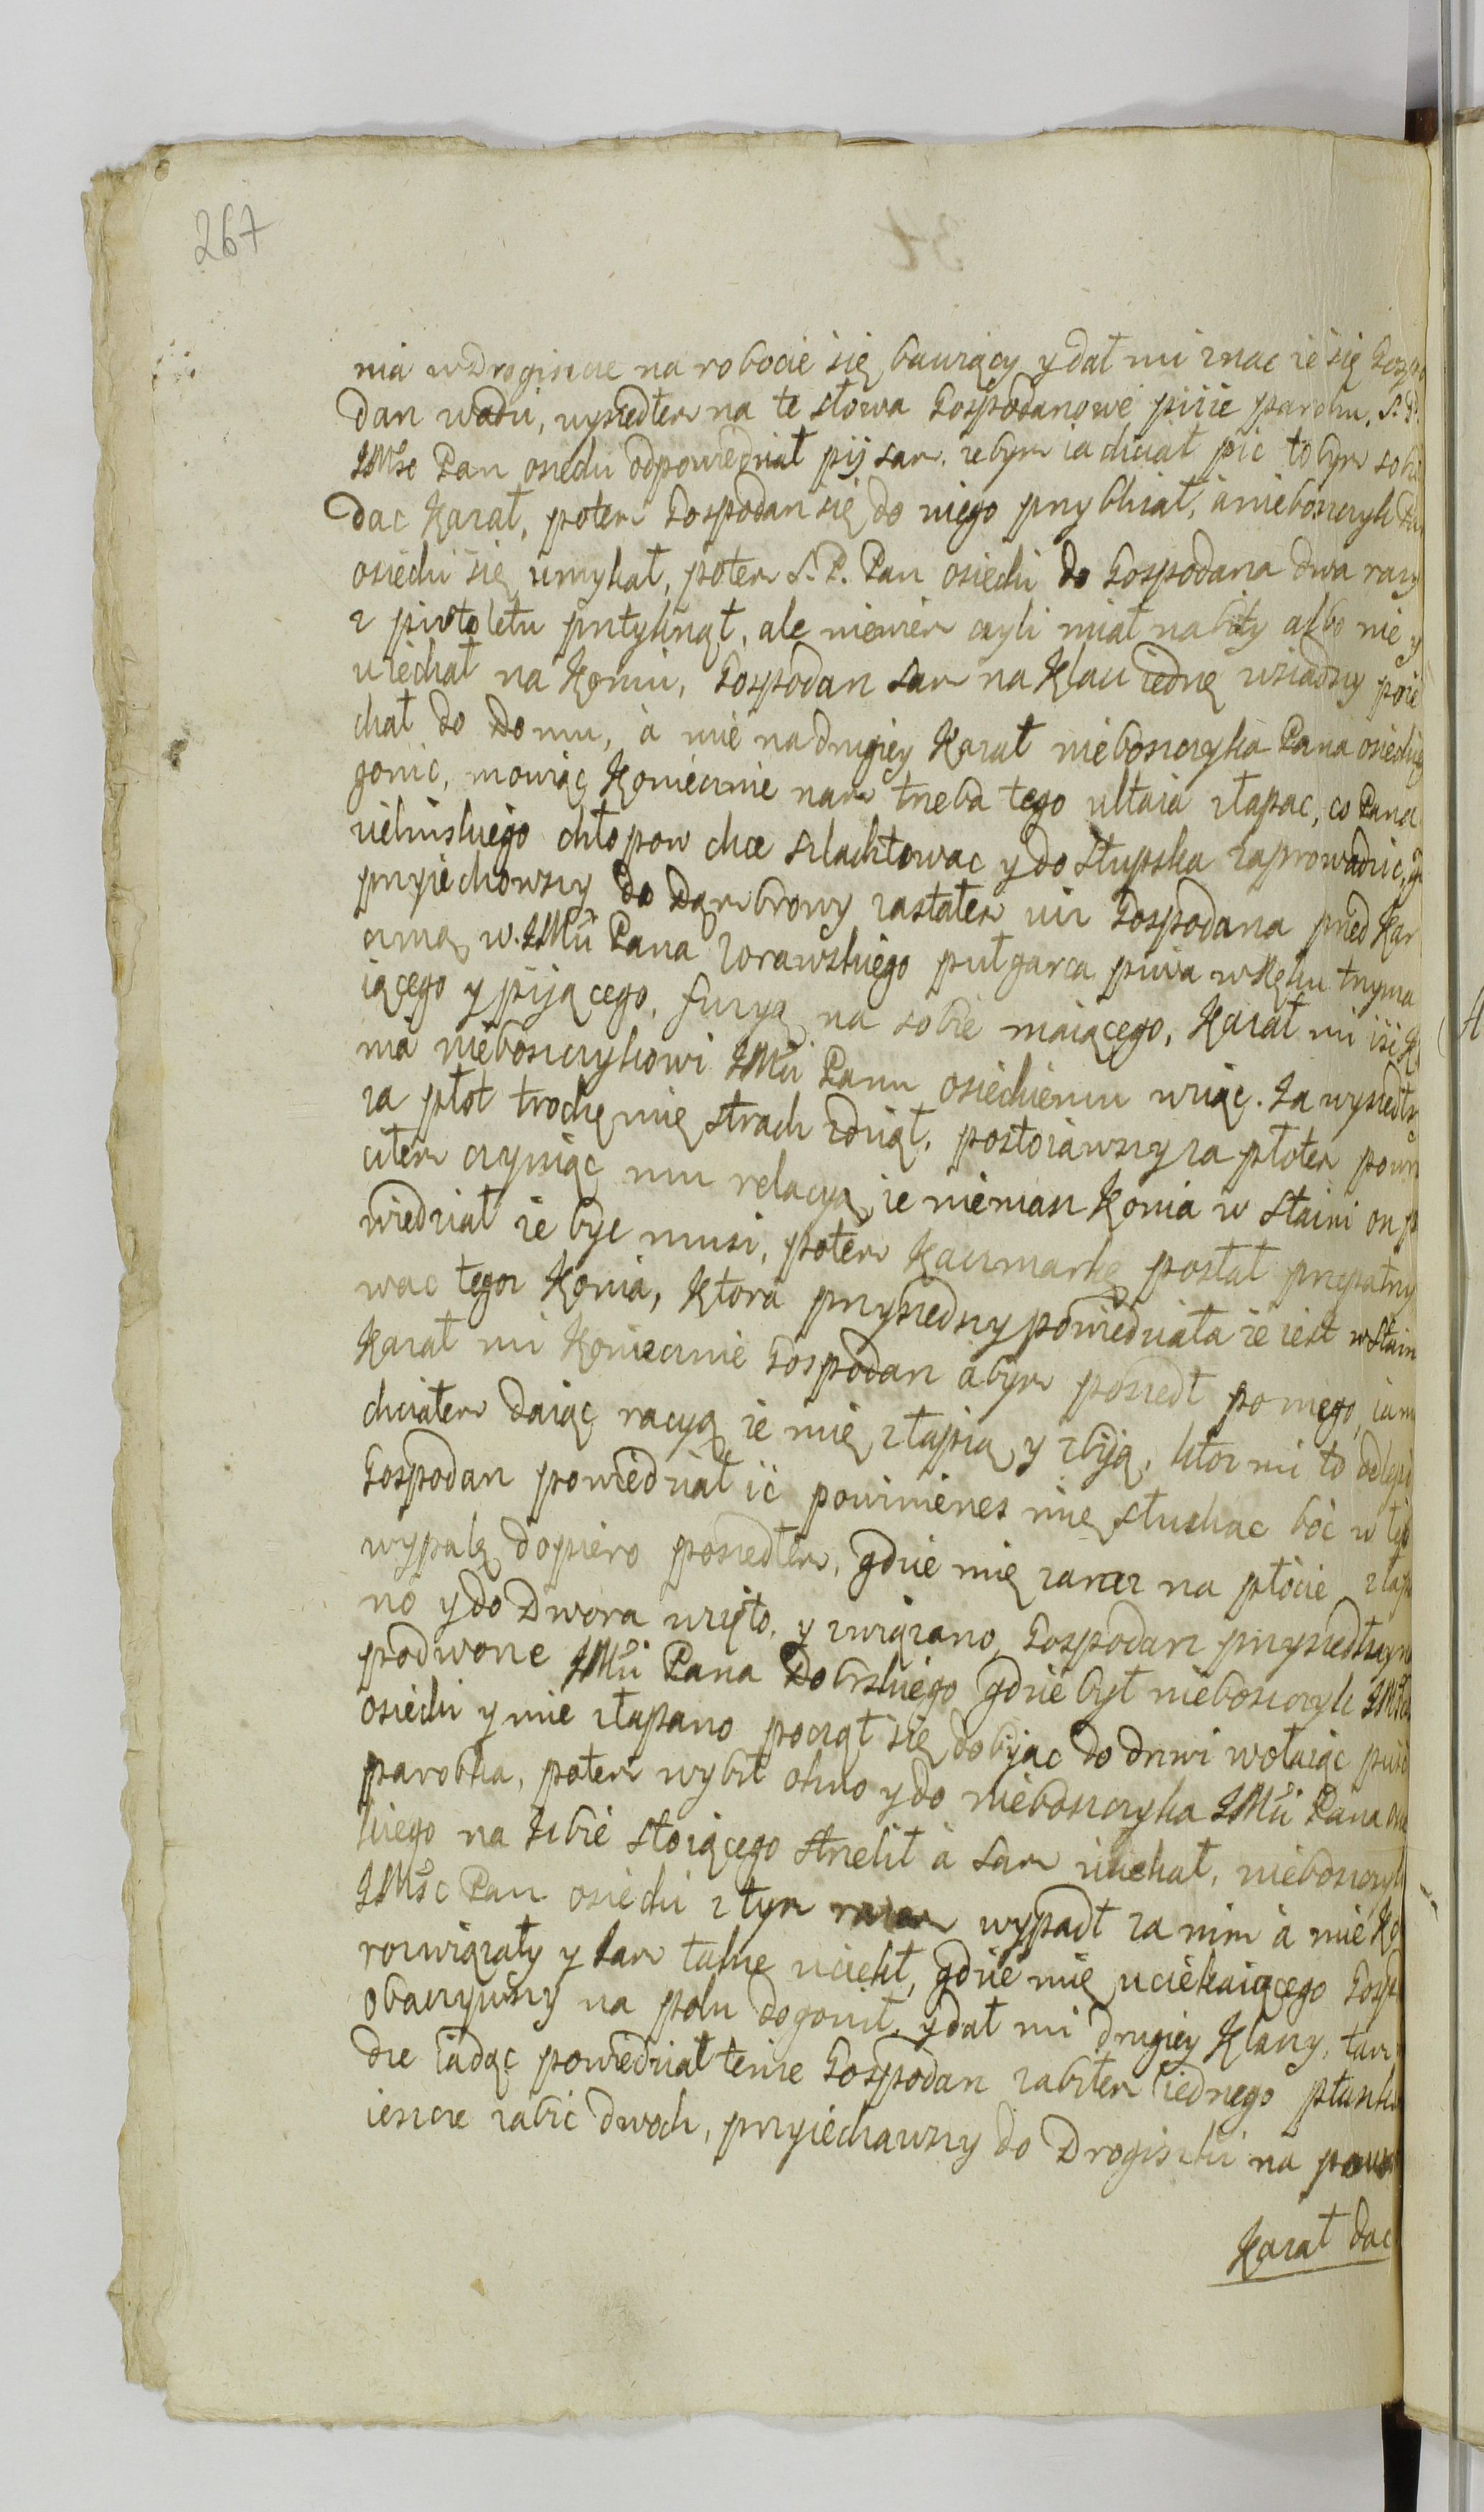 267
nia w Drogiscie na robocie się bawiący y dał mi znac ze się Gospo
darz wadzi, wyszedłem na te słowa Gospodarzowe piize parchu, S. P.
JMsc Pan osiecki odpowiedział pij sam, zebym ia chciał pic to bym sobie
dac Kazał, potem Gospodarz się do niego przyblizał, a nieboszczyk
osiecki się umykał, potem S. P. Pan osiecki do Gospodarza dwa razy
z pistoletu przytyknął, ale niewiem czyli miał nabity albo nie y
uiechał na Koniu, Gospodarz sam na Klacz iednę wsiadszy poie
chał do Domu, à mie na drugiey Kazał nieboszczyka Pana osieckieg
gonic, mowiąc Koniecznie nam trzeba tego ultaia złapac, co Pana
zielinskiego chłopow chce szlachtowac y do Słupska zaprowadzic,
przyiechowszy do Dąmbrowy zastałem iuz Gospodarza przed Kar
czmą w. JMci Pana Zorawskiego pułgarca piwa w Ręku trzyma
iącego y pijącego, furyą na sobie maiącego, Kazał mi isc Ko
nia nieboszczykowi JMci Panu osieckiemu wziąc. Ja wyszedłszy
za płot trochę mię strach zdiął, postoiawszy za płotem powro
ciłem czyniąc mu relacyą ze niemasz Konia w Stayni on po
wiedział ze byc musi, potem Kaczmarkę posłał przepatry
wac tegoz Konia, Ktora przyszedszy powiedziała ze iest w Stain
Kazał mi Koniecznie Gospodarz abym poszedł po niego, iam
chciałem daiąc racyą ze mię złapią y zbiją, ktoz mi to odlezi
Gospodarz powiedział ic powinienes mię słuchac boc w łeb
wypalę dopiero poszedłem, gdzie mię zaraz na płocie złapa
no y do Dwora wzięto, y związano, Gospodarz przyszedłszy
pod wone JMci Pana Dobrskiego gdzie był nieboszczyk JMsc
osiecki y mie złapano począł się dobijac do drzwi wołaiąc pusc
parobka, potem wybił okno y do nieboszczyka JMci Pana osie
kiego na Izbie stoiącego strzelił à sam uiechał, nieboszczyk
JMsc Pan osiecki z tym razem wypadł za nim à mie Ko
rozwiązały y sam takze uciekł, gdzie mię uciekaiącego Gosp
obaczywszy na polu dogonił, y dał mi drugiey Klaczy, tam
dze iadąc powiedział tenze Gospodarz zabiłem iednego ptaszka
ieszcze zabic dwoch, przyiechawszy do Drogiszki na powr
Kazał dac